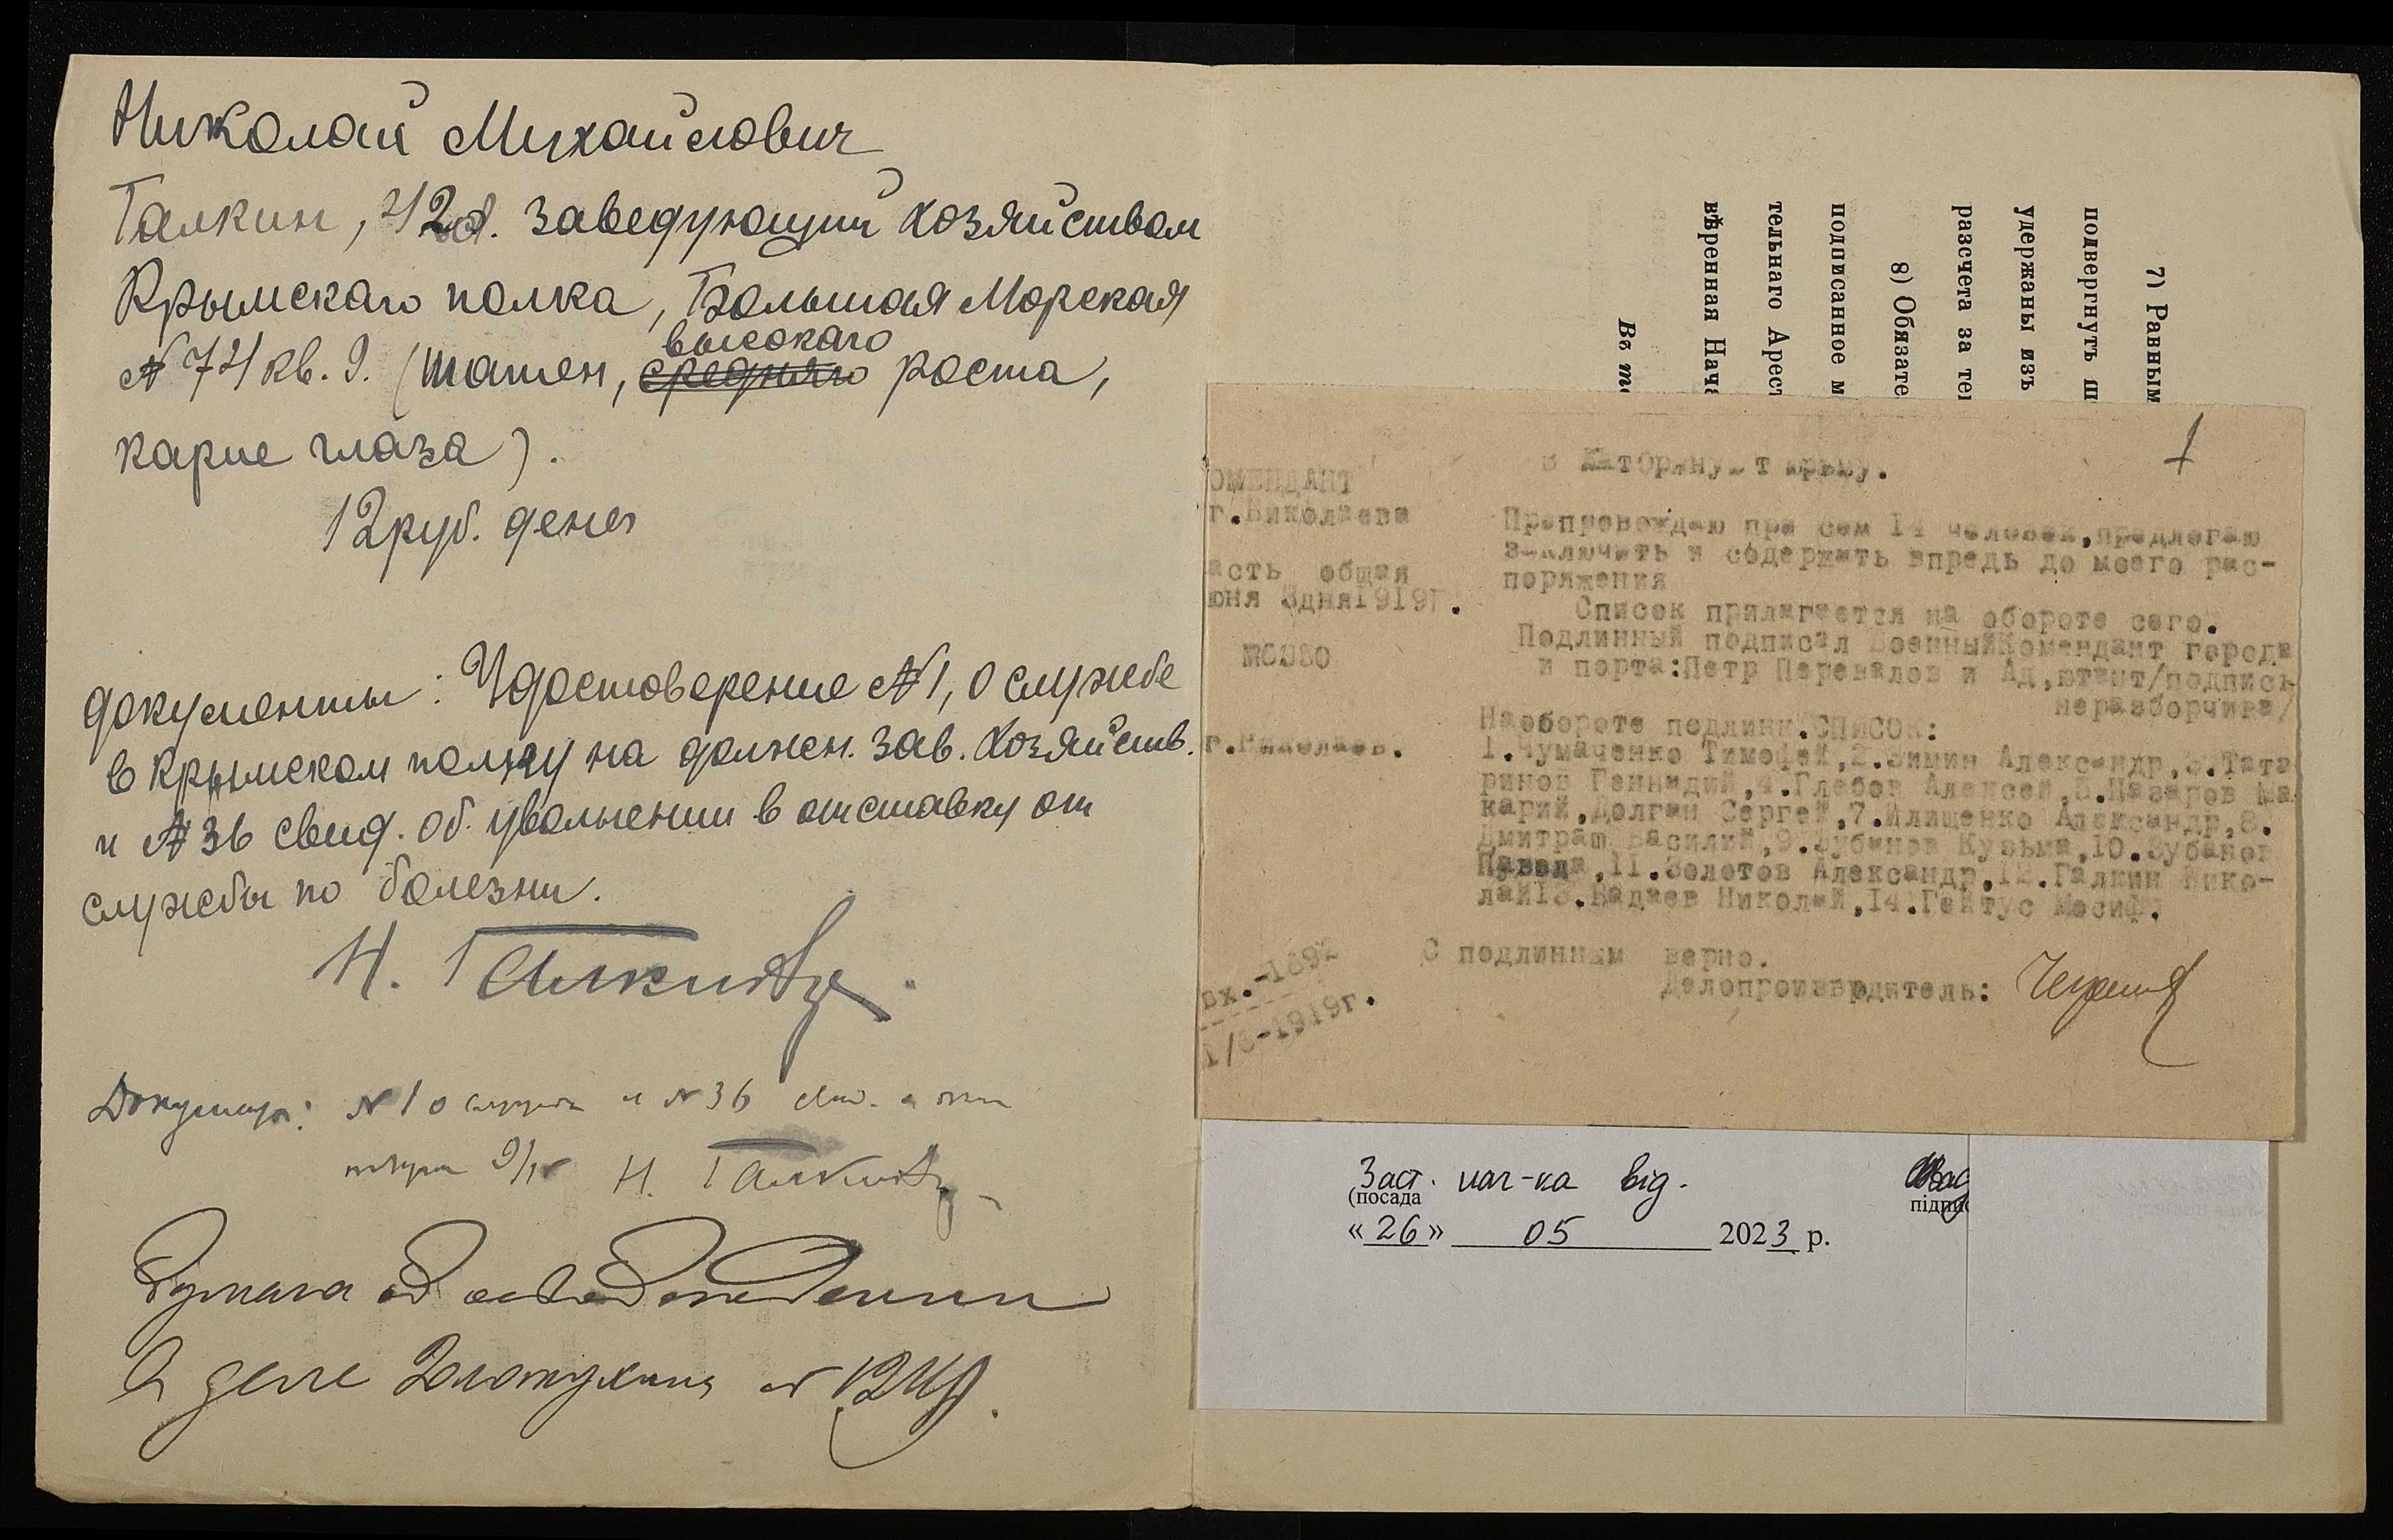 Николай Михайлович
Галкин, 42 л. заведующий хозяйством
Крымскаго полка, Большая Морская
№ 74 кв. 9. (шатен, средняго высокаго роста,
карие глаза).
12 руб. денег
документы: Удостоверение № 1, о службе
в Крымском полку на должн. зав. хозяйств.
и № 36 свид. об увольнении в отставку от
службы по болезни.
Н. Галкин
№ 1 о службе и № 36
Н. Галкин
Бумага об освобождении
в деле Золотухина
7) Равным
подвергнутъ
удержаны изъ
разсчета за
8) Обязате
подписанное
тельнаго Арест
вѣренная Нача
Въ
1
ОМЕНДАНТ
г.Николаева
асть общая
юня 3дня1919г.
г.Николаев.
вх.-
-1919г.
в Каторжную т юрьму.
Препровождаю при сем 14 человек,предлагаю
заключить и содержать впредь до моего рас-
поряжения
Список прилагается на обороте сего.
Подлинный подписал ВоенныйКомендант города
и порта:Петр Перевалов и Ад,ютант/подпись
неразборчива/
Наобороте подлинн.СПИСОК:
1.Чумаченко Тимофей,2.Зимин Александр,3.Тата
ринов Геннадий,4.Глебов Алексей,5.Назаров Ма-
карий,Долган Сергей,7.Илищенко Александр,8.
Дмитраш Василий,9.Зубанов Кузьма,10.Зубанов
11.Золотов Александр,12.Галкин Нико-
лай13.Бадаев Николай,14.Гейтус Иосиф.
С подлинным верно.
Делопроизврдитель:
Заст. нач-ка від.
(посада
підпис
«26» 05 2023 р.